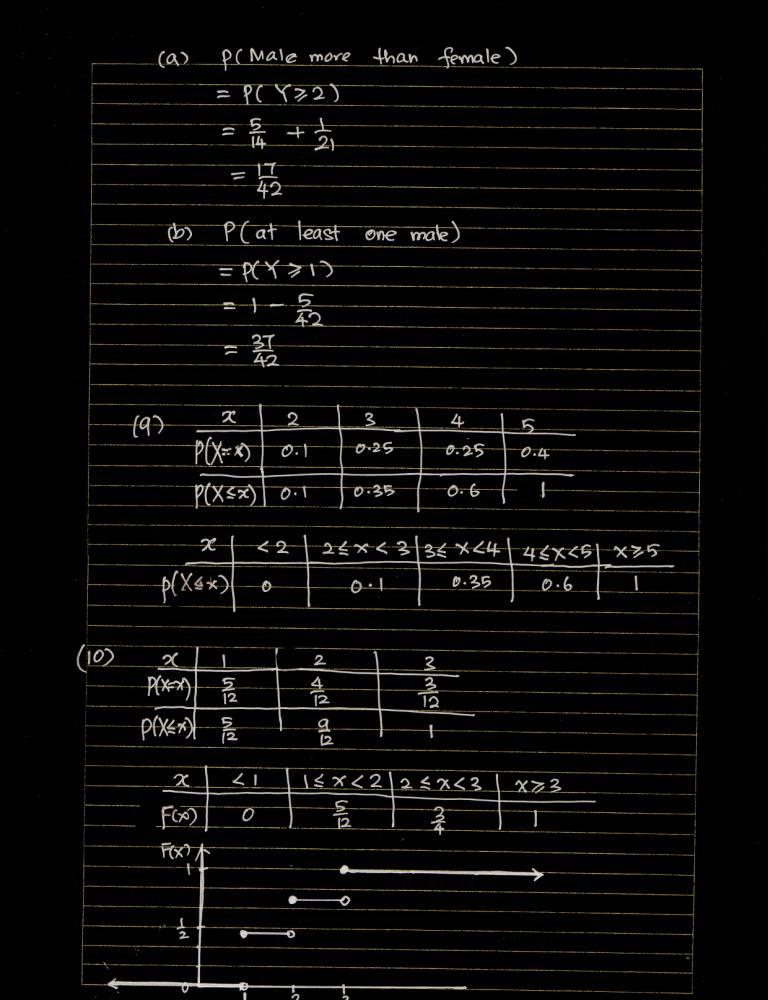 (a) P(Male more than female)
= P(Y≥2)
= 5/14 + 1/21
= 17/42
(b) P(at least one male)
= P(Y≥1)
= 1 - 5/42
= 37/42
(9) x | 2 | 3 | 4 | 5
P(X=x) | 0.1 | 0.25 | 0.25 | 0.4
P(X≤x) | 0.1 | 0.35 | 0.6 | 1
x | <2 | 2≤x<3 | 3≤x<4 | 4≤x<5 | x≥5
P(X≤x) | 0 | 0.1 | 0.35 | 0.6 | 1
(10) x | 1 | 2 | 3
P(X=x) | 5/12 | 4/12 | 3/12
P(X≤x) | 5/12 | 9/12 | 1
x | <1 | 1≤x<2 | 2≤x<3 | x≥3
F(x) | 0 | 5/12 | 3/4 | 1
F(x)
1
1/2
0
1 2 3